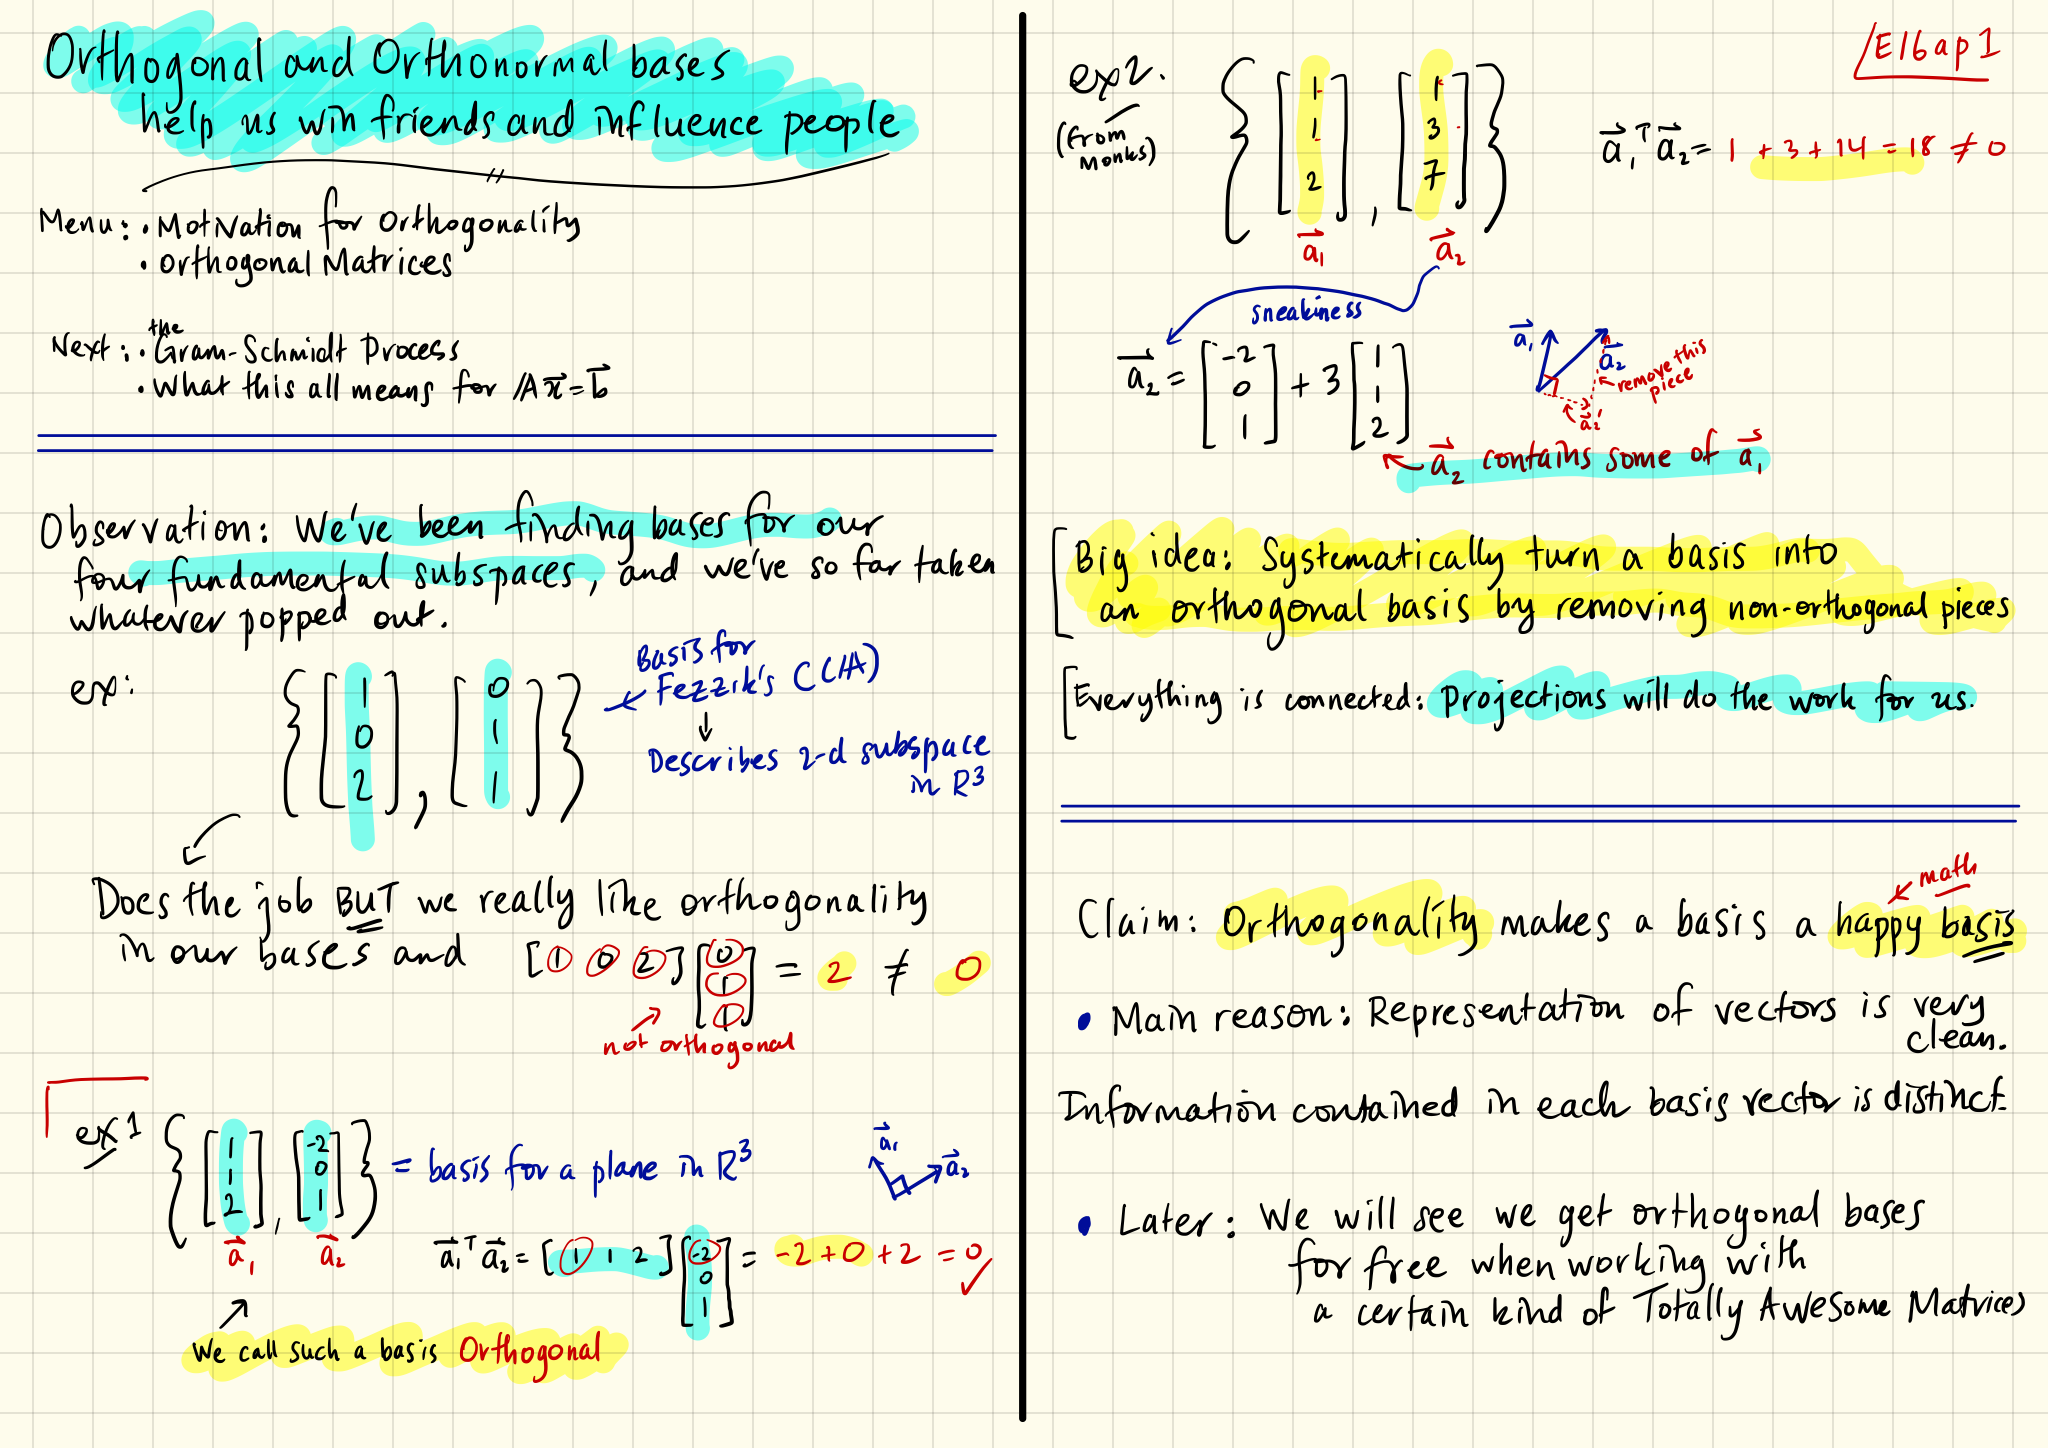 Orthogonal and Orthonormal bases
help us win friends and influence people
Menu: • Motivation for Orthogonality
• Orthogonal Matrices
Next: • the Gram-Schmidt Process
• What this all means for A x⃗ = b⃗
Observation: We've been finding bases for our
four fundamental subspaces, and we've so far taken
whatever popped out.
ex: { [1 0 2], [0 1 1] }
Basis for
Fezzik's C(A)
↓
Describes 2-d subspace
in R³
Does the job BUT we really like orthogonality
in our bases and [1 0 2] [0 1 1] = 2 ≠ 0
not orthogonal
ex 1 { [1 1 2], [-2 0 1] } = basis for a plane in R³
a⃗₁ a⃗₂
a⃗₁ a⃗₂
a⃗₁ᵀ a⃗₂ = [1 1 2] [-2 0 1] = -2 + 0 + 2 = 0 ✓
We call such a basis Orthogonal
E16a p1
ex 2. { [1 1 2], [1 3 7] }
(from
monks)
a⃗₁ a⃗₂
a⃗₁ᵀ a⃗₂ = 1 + 3 + 14 = 18 ≠ 0
sneakiness
a⃗₂ = [-2 0 1] + 3 [1 1 2]
a⃗₁
a⃗₂
remove this
piece
a⃗₂'
a⃗₂ contains some of a⃗₁'s
Big idea: Systematically turn a basis into
an orthogonal basis by removing non-orthogonal pieces
Everything is connected: Projections will do the work for us.
math
Claim: Orthogonality makes a basis a happy basis
• Main reason: Representation of vectors is very
clean.
Information contained in each basis vector is distinct.
• Later: We will see we get orthogonal bases
for free when working with
a certain kind of Totally Awesome Matrices